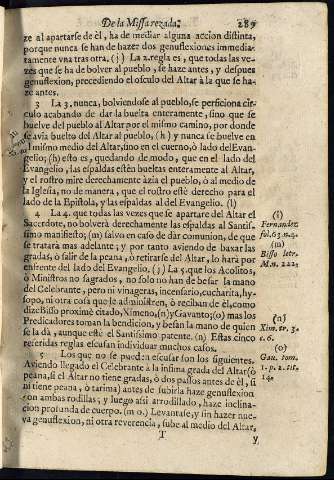 De la Missa rezada. 289
ze al apartarse de èl, ha de mediar alguna accion distinta,
porque nunca se han de hazer dos genuflexiones immedia-
tamente vna tras otra. (j) La 2. regla es, que todas las ve-
zes que se ha de bolver al pueblo, se haze antes, y despues
genuflexion, precediendo el osculo del Altar à la que se ha-
ze antes.
3 La 3. nunca, bolviendose al pueblo, se perficiona cir-
culo acabando de dar la buelta enteramente, sino que se
buelve del pueblo al Altar por el mismo camino, por donde
se avia buelto del Altar al pueblo, (h) y nunca se buelve en
el mismo medio del Altar, sino en el cuerno, ò lado del Evan-
gelio; (h) esto es, quedando de modo, que en el lado del
Evangelio, las espaldas estèn bueltas enteramente al Altar,
y el rostro mire derechamente àzia el pueblo, ò al medio de
la Iglesia, no de manera, que el rostro estè derecho para el
lado de la Epistola, y las espaldas al del Evangelio. (l)
4 La 4. que todas las vezes que se apartare del Altar el
Sacerdote, no bolverà derechamente las espaldas al Santis-
simo manifiesto; (m) salvo en caso de dar comunion, de que
se tratarà mas adelante; y por tanto aviendo de baxar las
gradas, ò salir de la peana, ò retirarse del Altar, lo harà por
enfrente del lado del Evangelio. (j) La 5. que los Acolitos,
ò Ministros no sagrados, no solo no han de besar la mano
del Celebrante, pero ni vinageras, incensario, cucharita, hy-
sopo, ni otra cosa que le administren, ò reciban de èl, como
dize Bisso proximè citado, Ximeno, (n) y Gavanto; (o) mas los
Predicadores toman la bendicion, y besan la mano de quien
se la dà, aunque estè el Santissimo patente. (n) Estas cinco
referidas reglas escusan individuar muchos casos.
5 Los que no se pueden escusar son los siguientes.
Aviendo llegado el Celebrante à la infima grada del Altar (ò
peana, si el Altar no tiene gradas, ò dos passos antes de èl, si
ni tiene peana, ò tarima) antes de subirla haze genuflexion
con ambas rodillas; y luego assi arrodillado, haze inclina-
cion profunda de cuerpo. (m o.) Levantase, y sin hazer nue-
va genuflexion, ni otra reverencia, sube al medio del Altar,
T y
(i)
Fernandez
fol. 63. n. 4.
(m)
Bisso letr.
M. n. 222.
(n)
Xim. tr. 3.
c. 6.
(o)
Gau. tom.
1. p. 2. tit.
14.